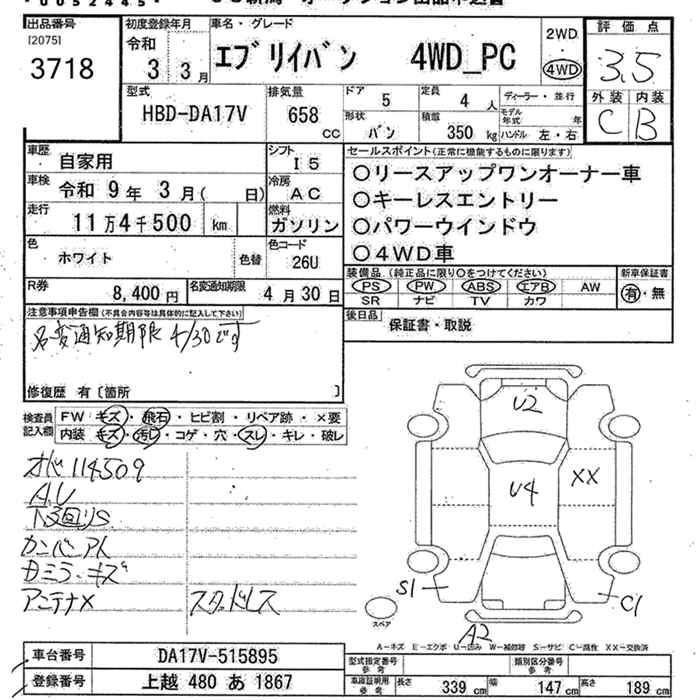 出品番号
[2075]
3718
初度登録年月
令和
3 3月
車名・グレード
エブリイバン 4WD_PC
2WD
4WD
評価点
3.5
外装 内装
C B
型式
HBD-DA17V
排気量
658
cc
ドア
5
定員
4 人
形状
バン
積載
350 kg
ディーラー・並行
モデル年式 年
ハンドル 左・右
車歴
自家用
シフト
I5
車検
令和 9年 3月( 日)
冷房
AC
走行
11万4千500 km
燃料
ガソリン
色
ホワイト
色替
色コード
26U
R券
8,400円
名変通知期限
4月30日
セールスポイント(正常に機能するものに限ります)
〇リースアップワンオーナー車
〇キーレスエントリー
〇パワーウインドウ
〇4WD車
装備品(純正品に限り〇をつけてください)
PS PW ABS エアB AW
SR ナビ TV カワ
新車保証書
有・無
後日品
保証書・取説
注意事項申告欄(不具合内容等は具体的に記入して下さい)
名変通知期限 4/30です
修復歴 有〔箇所 〕
検査員記入欄
FW キズ・飛石・ヒビ割・リペア跡・×要
内装 キズ・汚レ・コゲ・穴・スレ・キレ・破レ
オド114509
A.U
下回りS
カンバンアト
Rミラーキズ
アンテナX
スタッドレス
U2
U4
XX
S1
C1
A2
スペア
A-キズ E-エクボ U-凹み W-補修跡 S-サビ C-腐食 XX-交換済
車台番号
DA17V-515895
登録番号
上越 480 あ 1867
型式指定番号
参考
類別区分番号
参考
車庫証明用
参考
長さ 339 cm 幅 147 cm 高さ 189 cm